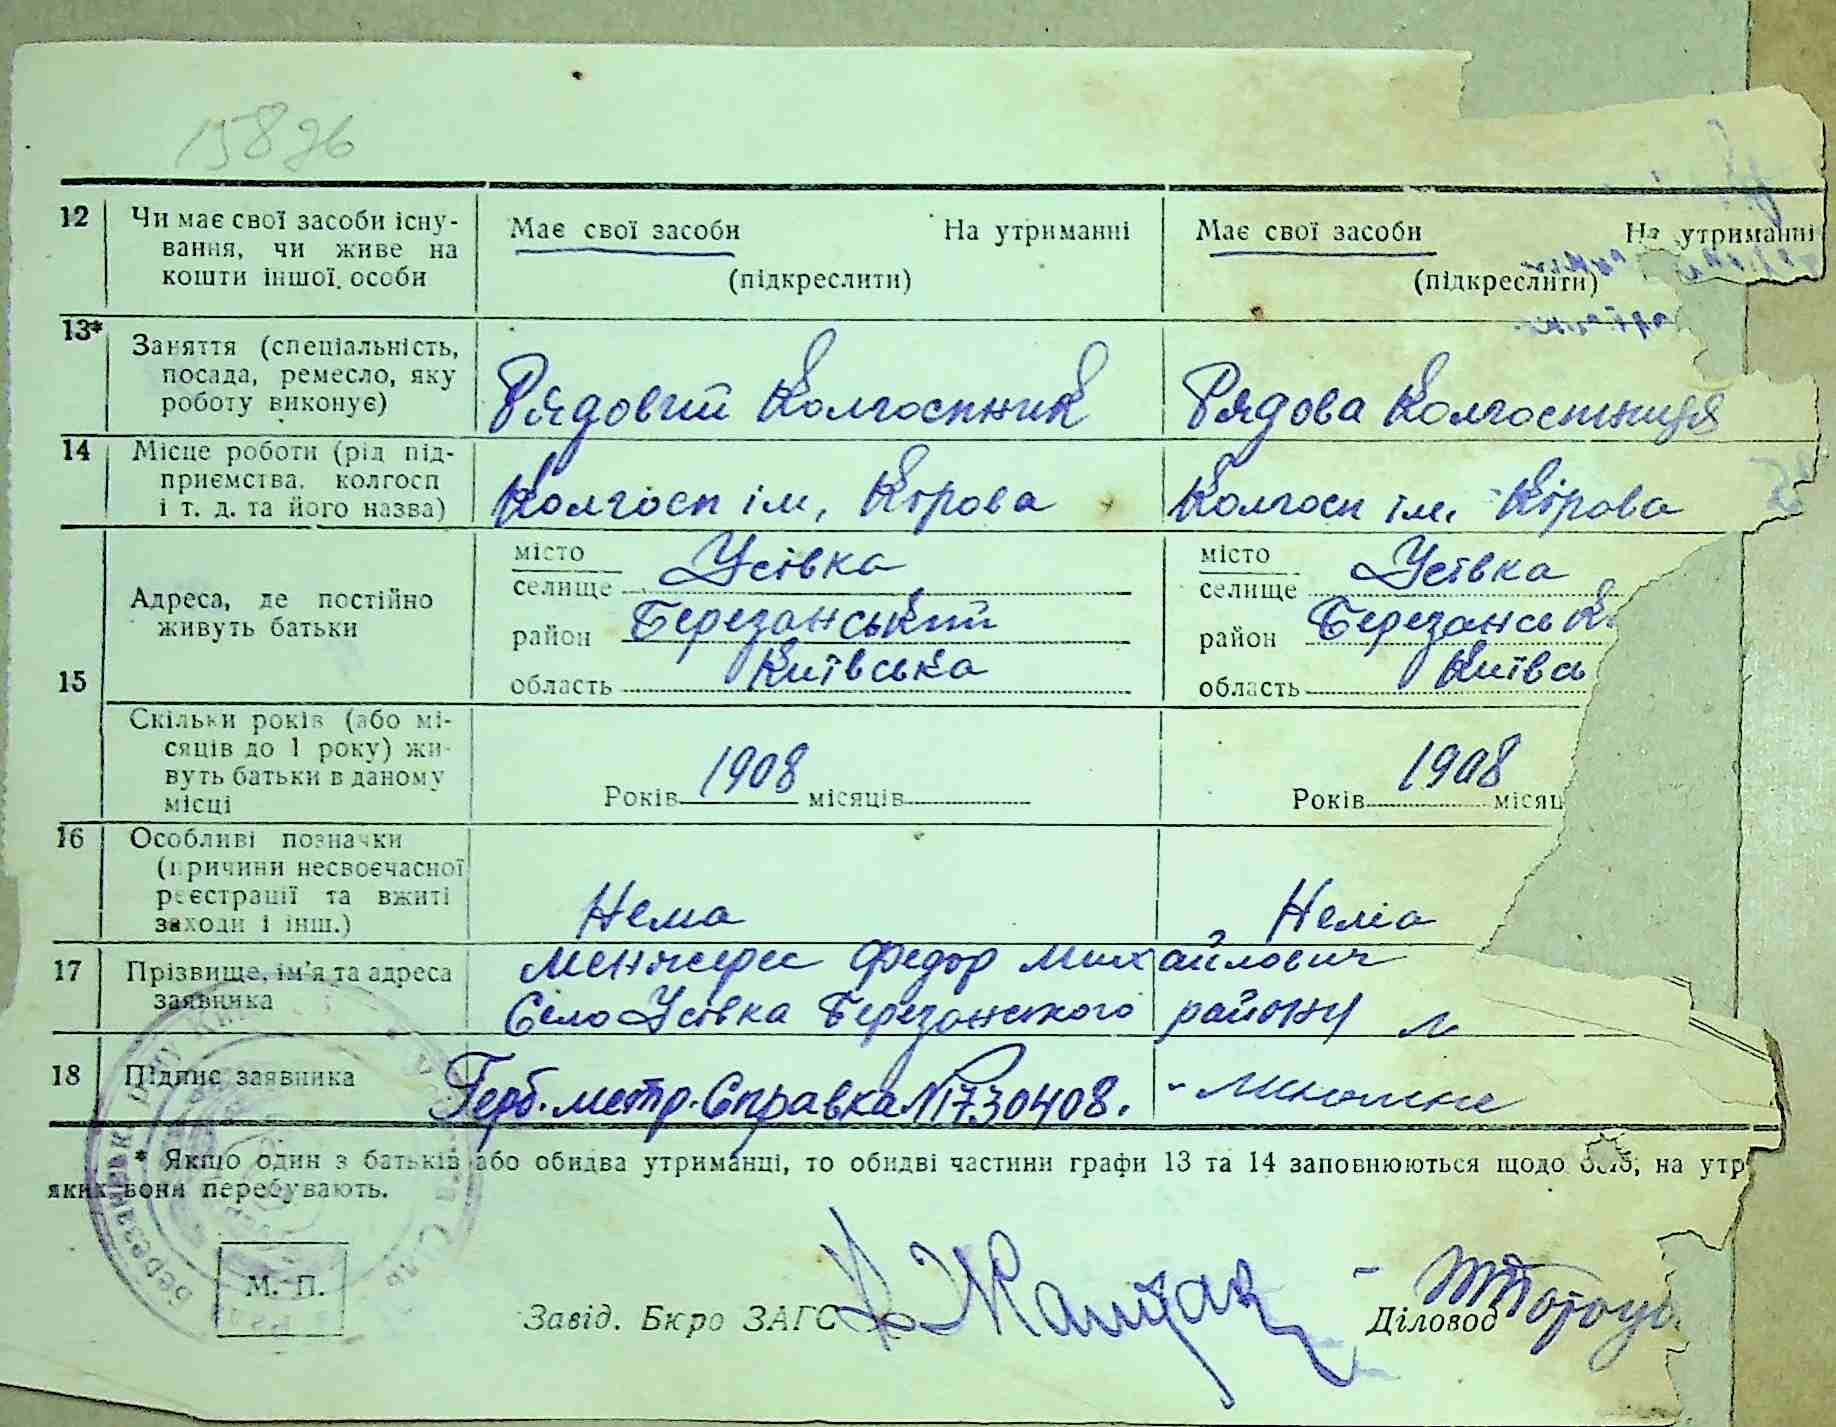 15876
12 Чи має свої засоби існу-
вання, чи живе на
кошти іншої особи
Має свої засоби На утриманні
(підкреслити)
Має свої засоби На утриманні
(підкреслити)
13* Заняття (спеціальність,
посада, ремесло, яку
роботу виконує)
Рядовий Колгоспник
Рядова Колгоспниця
14 Місце роботи (рід під-
приємства, колгосп
і т. д. та його назва)
Колгосп ім, Кірова
Колгосп ім. Кірова
15 Адреса, де постійно
живуть батьки
місто
селище Усівка
район Березанський
область Київська
місто
селище Усівка
район Березанськ
область Київсь
Скільки років (або мі-
сяців до 1 року) жи-
вуть батьки в даному
місці
Років 1908 місяців
Років 1908 місяц
16 Особливі позначки
(причини несвоєчасної
реєстрації та вжиті
заходи і інш.)
Нема
Нема
17 Прізвище, ім'я та адреса
заявника
Менжерес Федор Михайлович
Село Усівка Березанського району
18 Підпис заявника
Герб. метр. Справка №1730408.
* Якщо один з батьків або обидва утриманці, то обидві частини графи 13 та 14 заповнюються щодо осіб, на утр
яких вони перебувають.
М. П.
Завід. Бюро ЗАГС
Діловод